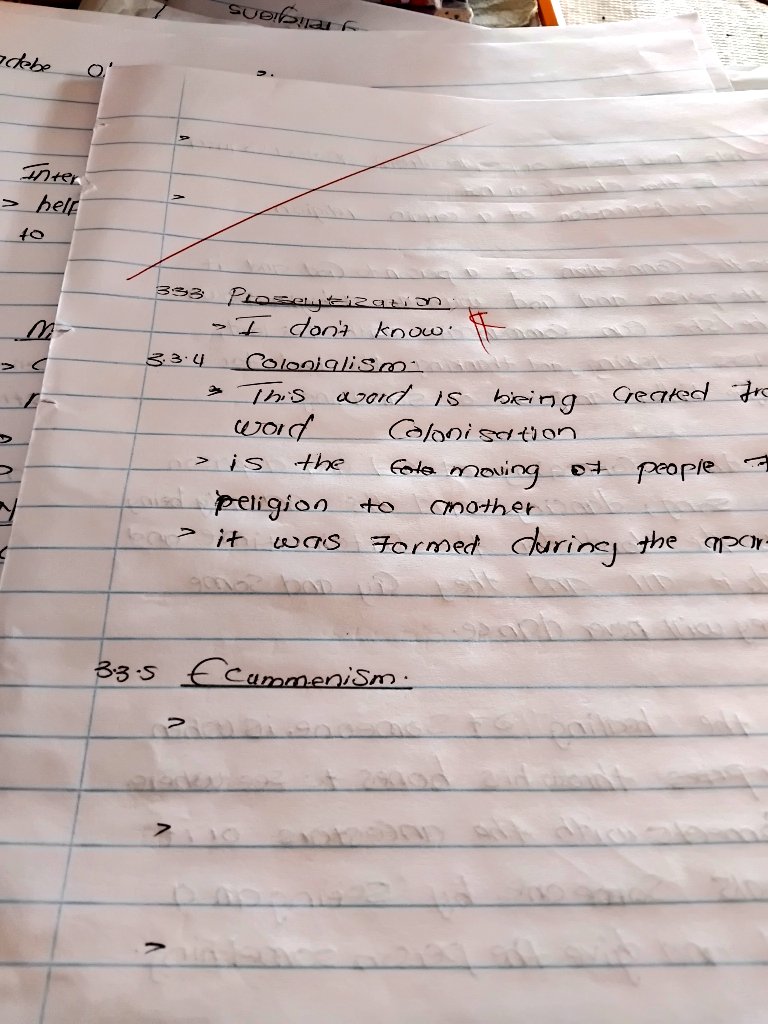 religions
Inter
> help
to
>
>
333 Proselytization.
> I don't know.
3.3.4 Colonialism.
> This word is being Created fro
word Colonisation
> is the moving of people f
religion to another
> it was formed during the apar
3.3.5 Ecummenism.
>
>
>